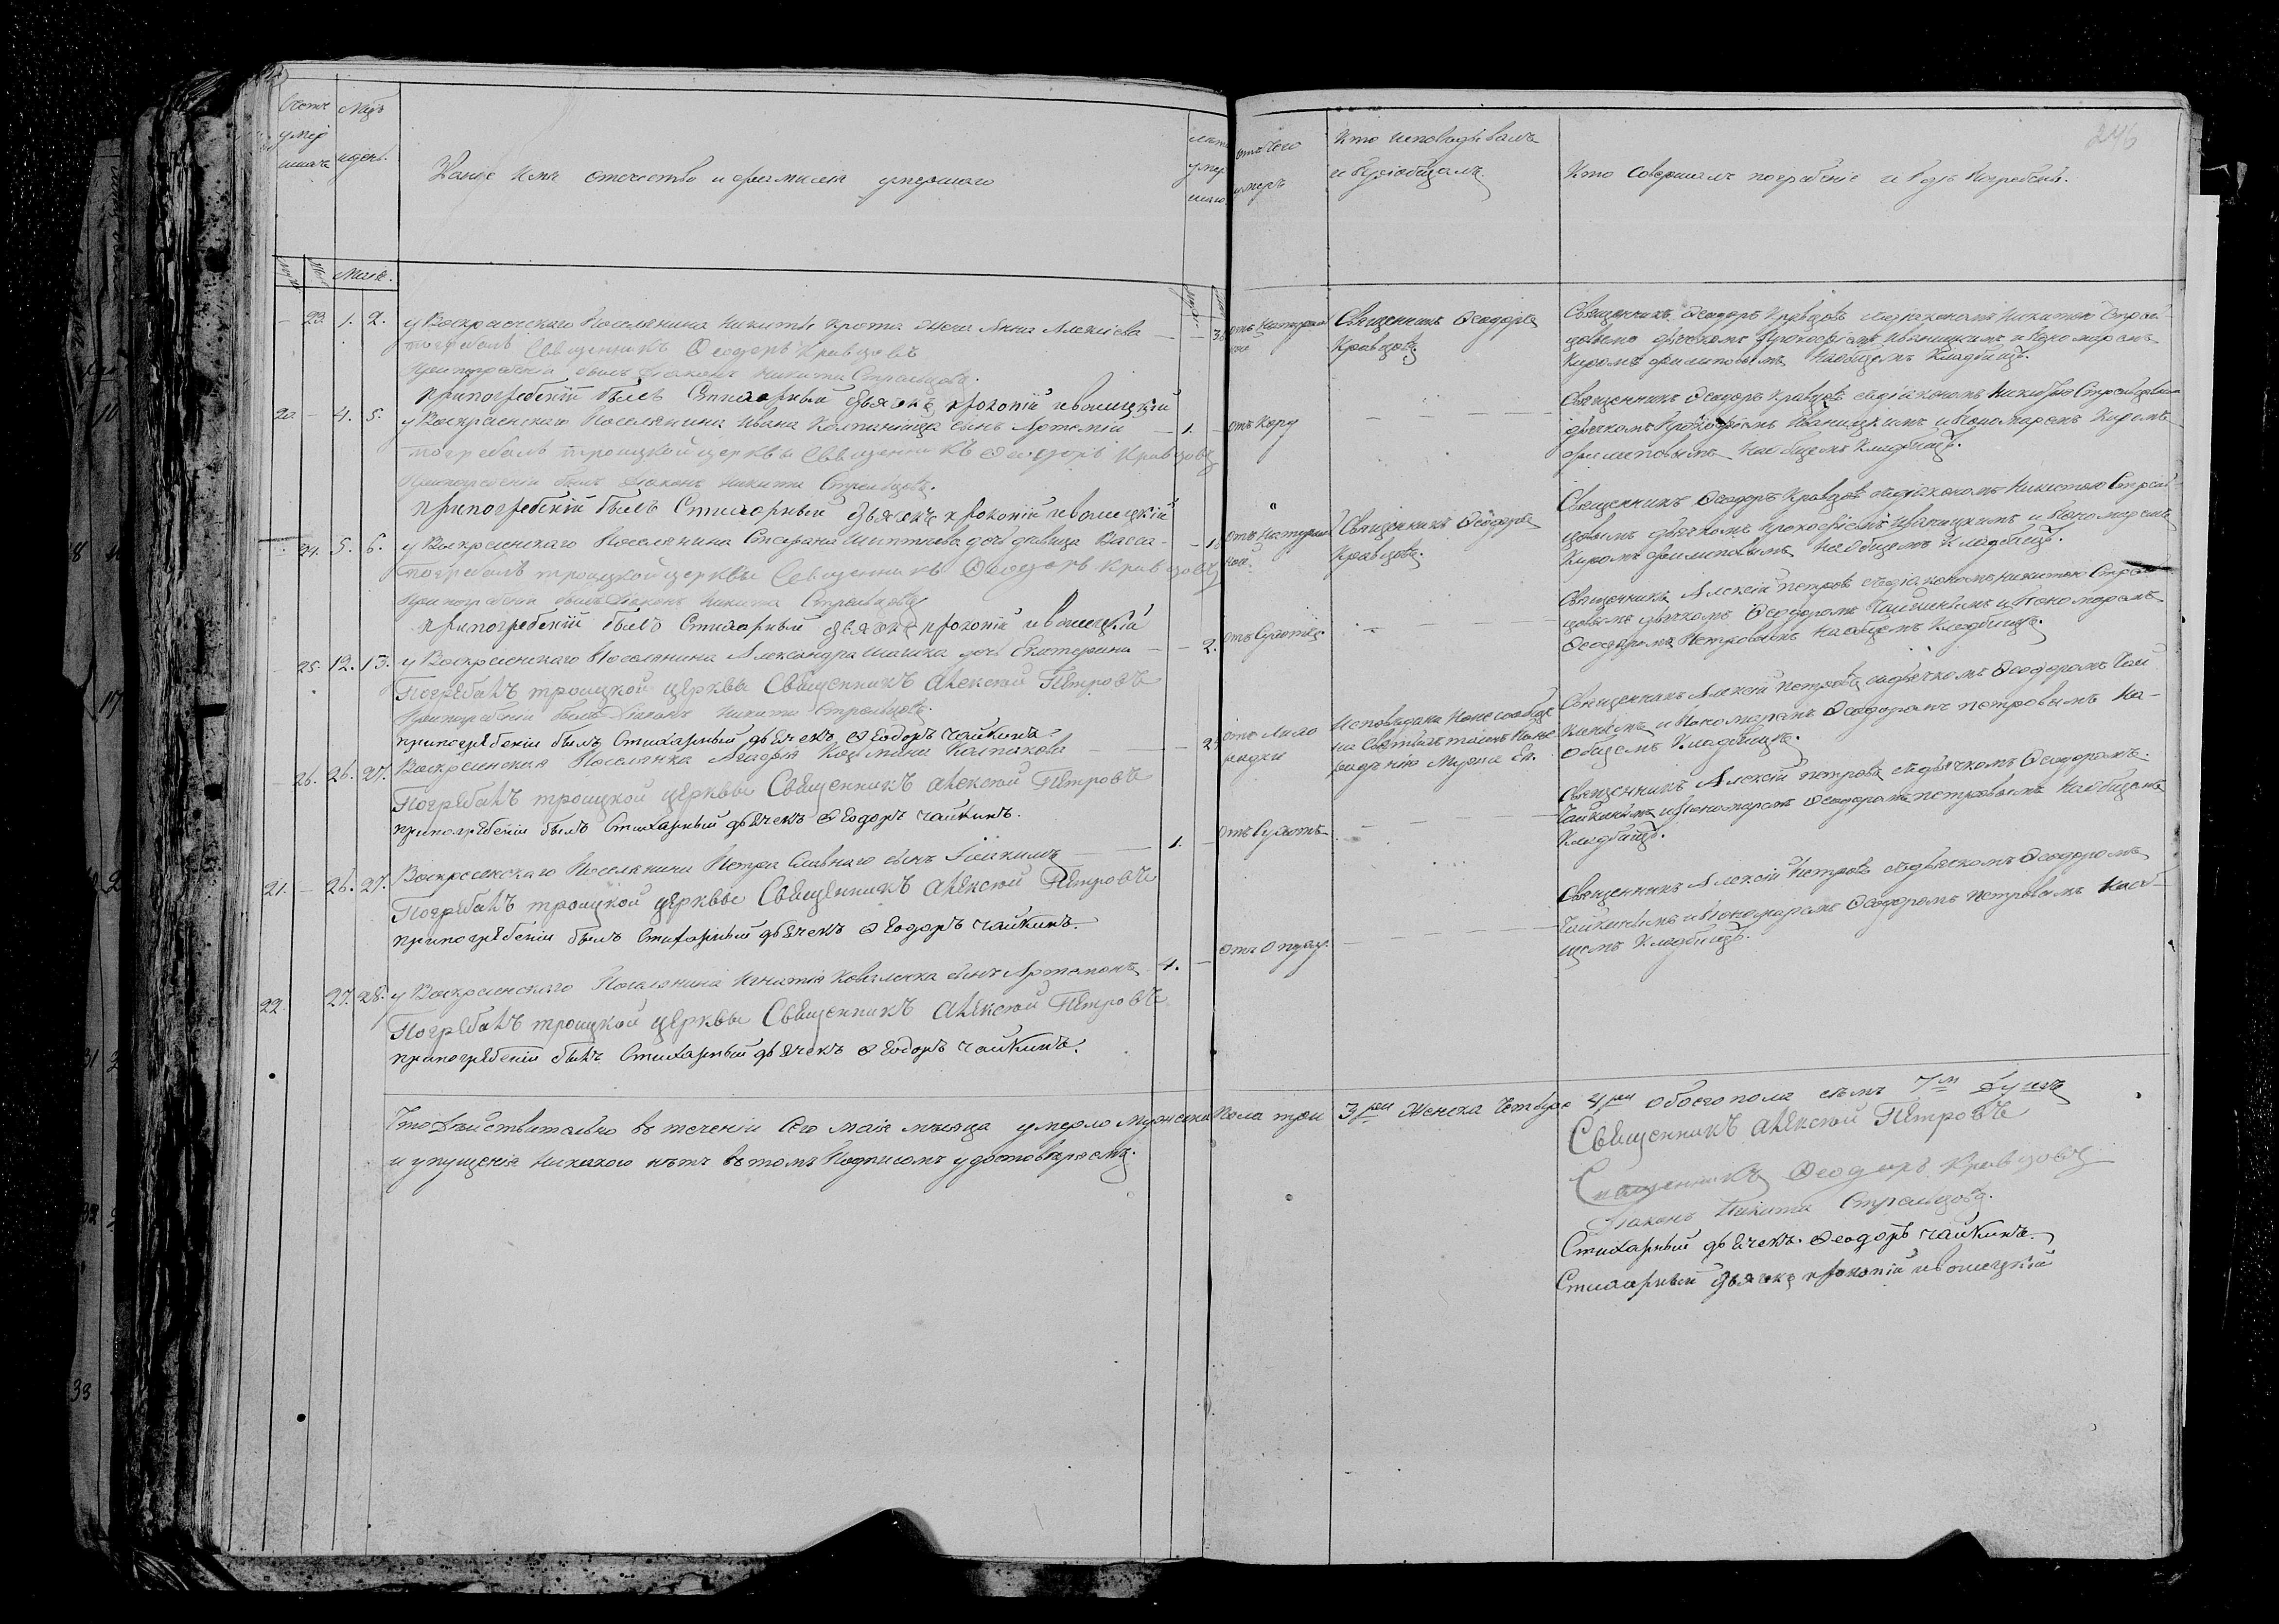 Счетъ умершихъ
Мѣсяцъ и день.
Званіе Имя отечество и фамилія умершаго
Лета умершаго
отъ чего умеръ
Кто исповѣдывалъ и пріобщалъ.
Кто совершалъ погребеніе и гдѣ погребены.
246
Маія.
— 23. 1. 2. у Воскресенскаго Поселянина Никиты Крота жена Анна Алексіева — —
погребалъ Священникъ Ѳеодоръ Кравцовъ
при погребеніи былъ Діаконъ Никита Стрельцовъ.
при погребеніи былъ Стихарный дьячекъ Прокопій Иваницкій
отъ Натуральной
Священникъ Ѳеодоръ Кравцовъ
Священникъ Ѳеодоръ Кравцовъ съ діакономъ Никитою Стрель-
цовымъ дьячкомъ Прокофіемъ Иваницкимъ и Пономаремъ
Киромъ Филиповымъ На общемъ Кладбищѣ.
20 — 4. 5. у Воскресенскаго Поселянина Ивана Компанійца сынъ Артемій — 1. —
погребалъ троицкой церквы Священникъ Ѳеодоръ Кравцовъ
При погребеніи былъ Діаконъ Никита Стрельцовъ.
при погребеніи былъ Стихарный дьячекъ Прокопій Иваницкій
отъ Кору
Священникъ Ѳеодоръ Кравцовъ съ діакономъ Никитою Стрельцовымъ
дьячкомъ Прокофіемъ Иваницкимъ и Пономаремъ Киромъ
Филиповымъ На общемъ Кладбищѣ.
24. 5. 6. у Воскресенскаго Поселянина Стефана дочь девица Васса —
погребалъ троицкой церквы Священникъ Ѳеодоръ Кравцовъ
при погребеніи былъ Діаконъ Никита Стрельцовъ
при погребеніи былъ Стихарный дьячекъ Прокопій Иваницкій
отъ Натуральной.
Священникъ Ѳеодоръ Кравцовъ.
Священникъ Ѳеодоръ Кравцовъ съ діакономъ Никитою Стрель-
цовымъ дьячкомъ Прокофіемъ Иваницкимъ и Пономаремъ
Киромъ Филиповымъ На общемъ Кладбищѣ.
— 25. 12. 13. у Воскресенскаго Поселянина Александра дочь Екатерина — — 2.
Погребалъ троицкой церквы Священникъ Алексѣй Петровъ
При погребеніи былъ Діаконъ Никита Стрельцовъ.
при погребеніи былъ Стихарный дьячекъ Ѳеодоръ Чайкинъ
Священникъ Алексій Петровъ съ діакономъ Никитою Стрель-
цовымъ дьячкомъ Ѳеодоромъ Чайкинымъ и Пономаремъ
Ѳеодоромъ Петровымъ На общемъ Кладбищѣ.
— 26. 26. 27. Воскресенская Поселянка Козмина
Погребалъ троицкой церквы Священникъ Алексѣй Петровъ
при погребеніи былъ Стихарный дьячекъ Ѳеодоръ Чайкинъ.
отъ лихорадки
Священникъ Алексій Петровъ съ дьячкомъ Ѳеодоромъ Чай-
кинымъ и Пономаремъ Ѳеодоромъ Петровымъ На-
общемъ Кладбищѣ.
21. — 26. 27. Воскресенскаго Поселянина Петра Славнаго сынъ Іоакимъ — 1. —
Погребалъ троицкой церквы Священникъ Алексѣй Петровъ
при погребеніи былъ Стихарный дьячекъ Ѳеодоръ Чайкинъ.
Священникъ Алексій Петровъ съ дьячкомъ Ѳеодоромъ
Чайкинымъ и Пономаремъ Ѳеодоромъ Петровымъ На общемъ
Кладбищѣ.
22. 27. 28. у Воскресенскаго Поселянина Игнатія Коваленка сынъ Артамонъ 4. —
Погребалъ троицкой церквы Священникъ Алексѣй Петровъ
при погребеніи былъ Стихарный дьячекъ Ѳеодоръ Чайкинъ.
Священникъ Алексій Петровъ съ дьячкомъ Ѳеодоромъ
Чайкинымъ и Пономаремъ Ѳеодоромъ Петровымъ На об-
щемъ Кладбищѣ.
Что действительно въ теченіи сего маія месяца умерло мужеска Пола три 3ри Женска Четыре 4ри обоего пола семъ 7мъ душъ
и упущенія никакого нѣтъ въ томъ Подписомъ удостовѣряемъ.
Священникъ Алексѣй Петровъ
Священникъ Ѳеодоръ Кравцовъ
Діаконъ Никита Стрельцовъ.
Стихарный дьячекъ Ѳеодоръ Чайкинъ.
Стихарный дьячекъ Прокопій Иваницкій